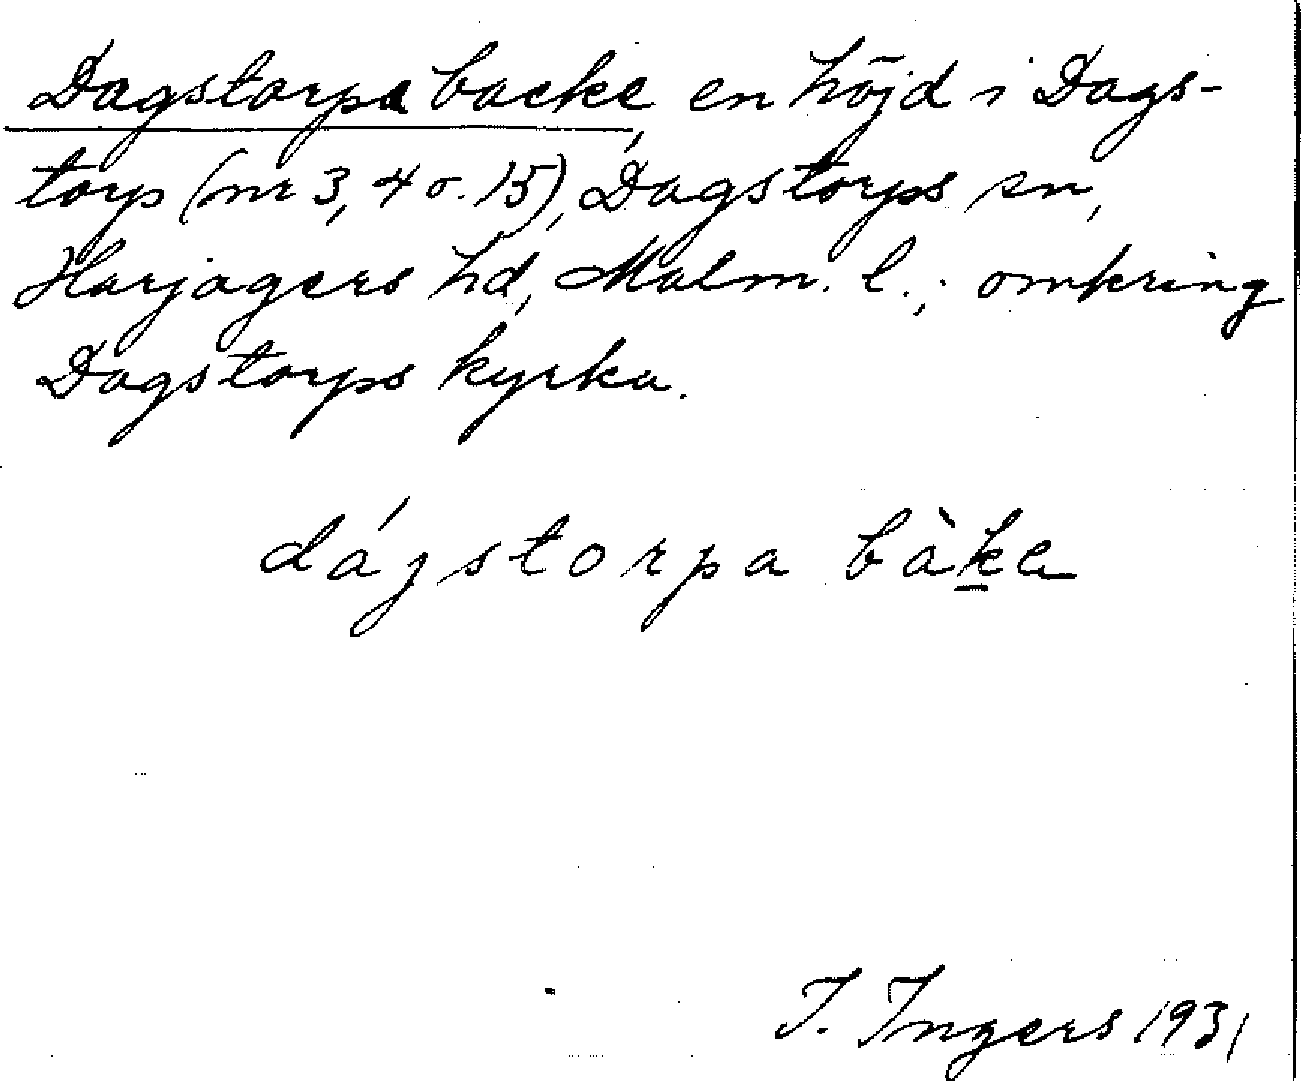 Dagstorpa backe, en höjd i Dags-
torp (nr 3, 4 o. 15), Dagstorps sn,
Harjagers hd, Malm. l.; omkring
Dagstorps kyrka.
dágstorpa bàka
I. Ingers 1931